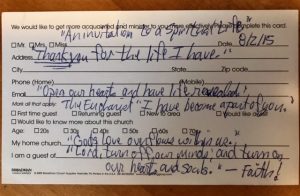 We would like to get more acquainted and minister to you more effectively. Please complete this card.
"An invitation to a Spiritual Life"
Mr. Mrs. Miss Date 8/2/15
"Thank you for the life I have."
Address
City State Zip code
Phone (Home) (Mobile)
"Open our hearts and have life revealed."
Email
Mark all that apply:
The Eucharist "I have become a part of you."
First time guest Returning guest New to area Would like
Would like to know more about this church
Age: 20s 30s 40s 50s 60s 70s
"God's love overflows within us."
My home church
"Lord, turn off our minds and turn on
I am a guest of
our hearts and souls." — Faith!